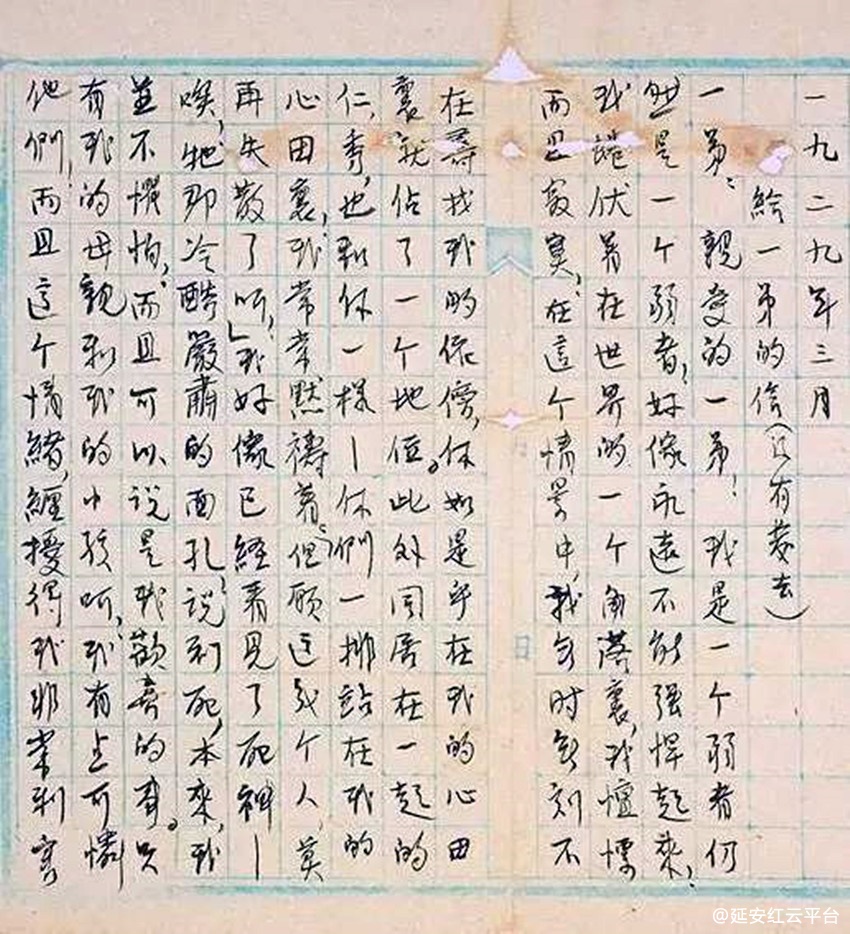 一九二九年三月
給一弟的信（沒有發去）
一弟：親愛的一弟！我是一个弱者仍
然是一个弱者，好像永遠不能强悍起來，
我蜷伏着在世界的一个角落裏，我懼慄
而且寂寞，在這个情景中，我無时無刻不
在尋找我的依傍，你如是乎在我的心田
裏就佔了一个地位。此外同居在一起的
仁，秀，也和你一樣—你們一排站在我的
心田裏，我常常默禱着，但願這几个人，莫
再失散了呵，」我好像已經看見了死神—
唉，牠那冷酷嚴肅的面孔，說到死，本來，我
並不惧怕，而且可以說是我歡喜的事。只
有我的母親和我的小孩呵，我有点可憐
他們，而且這个情緒，纏擾得我非常利害
@延安红云平台